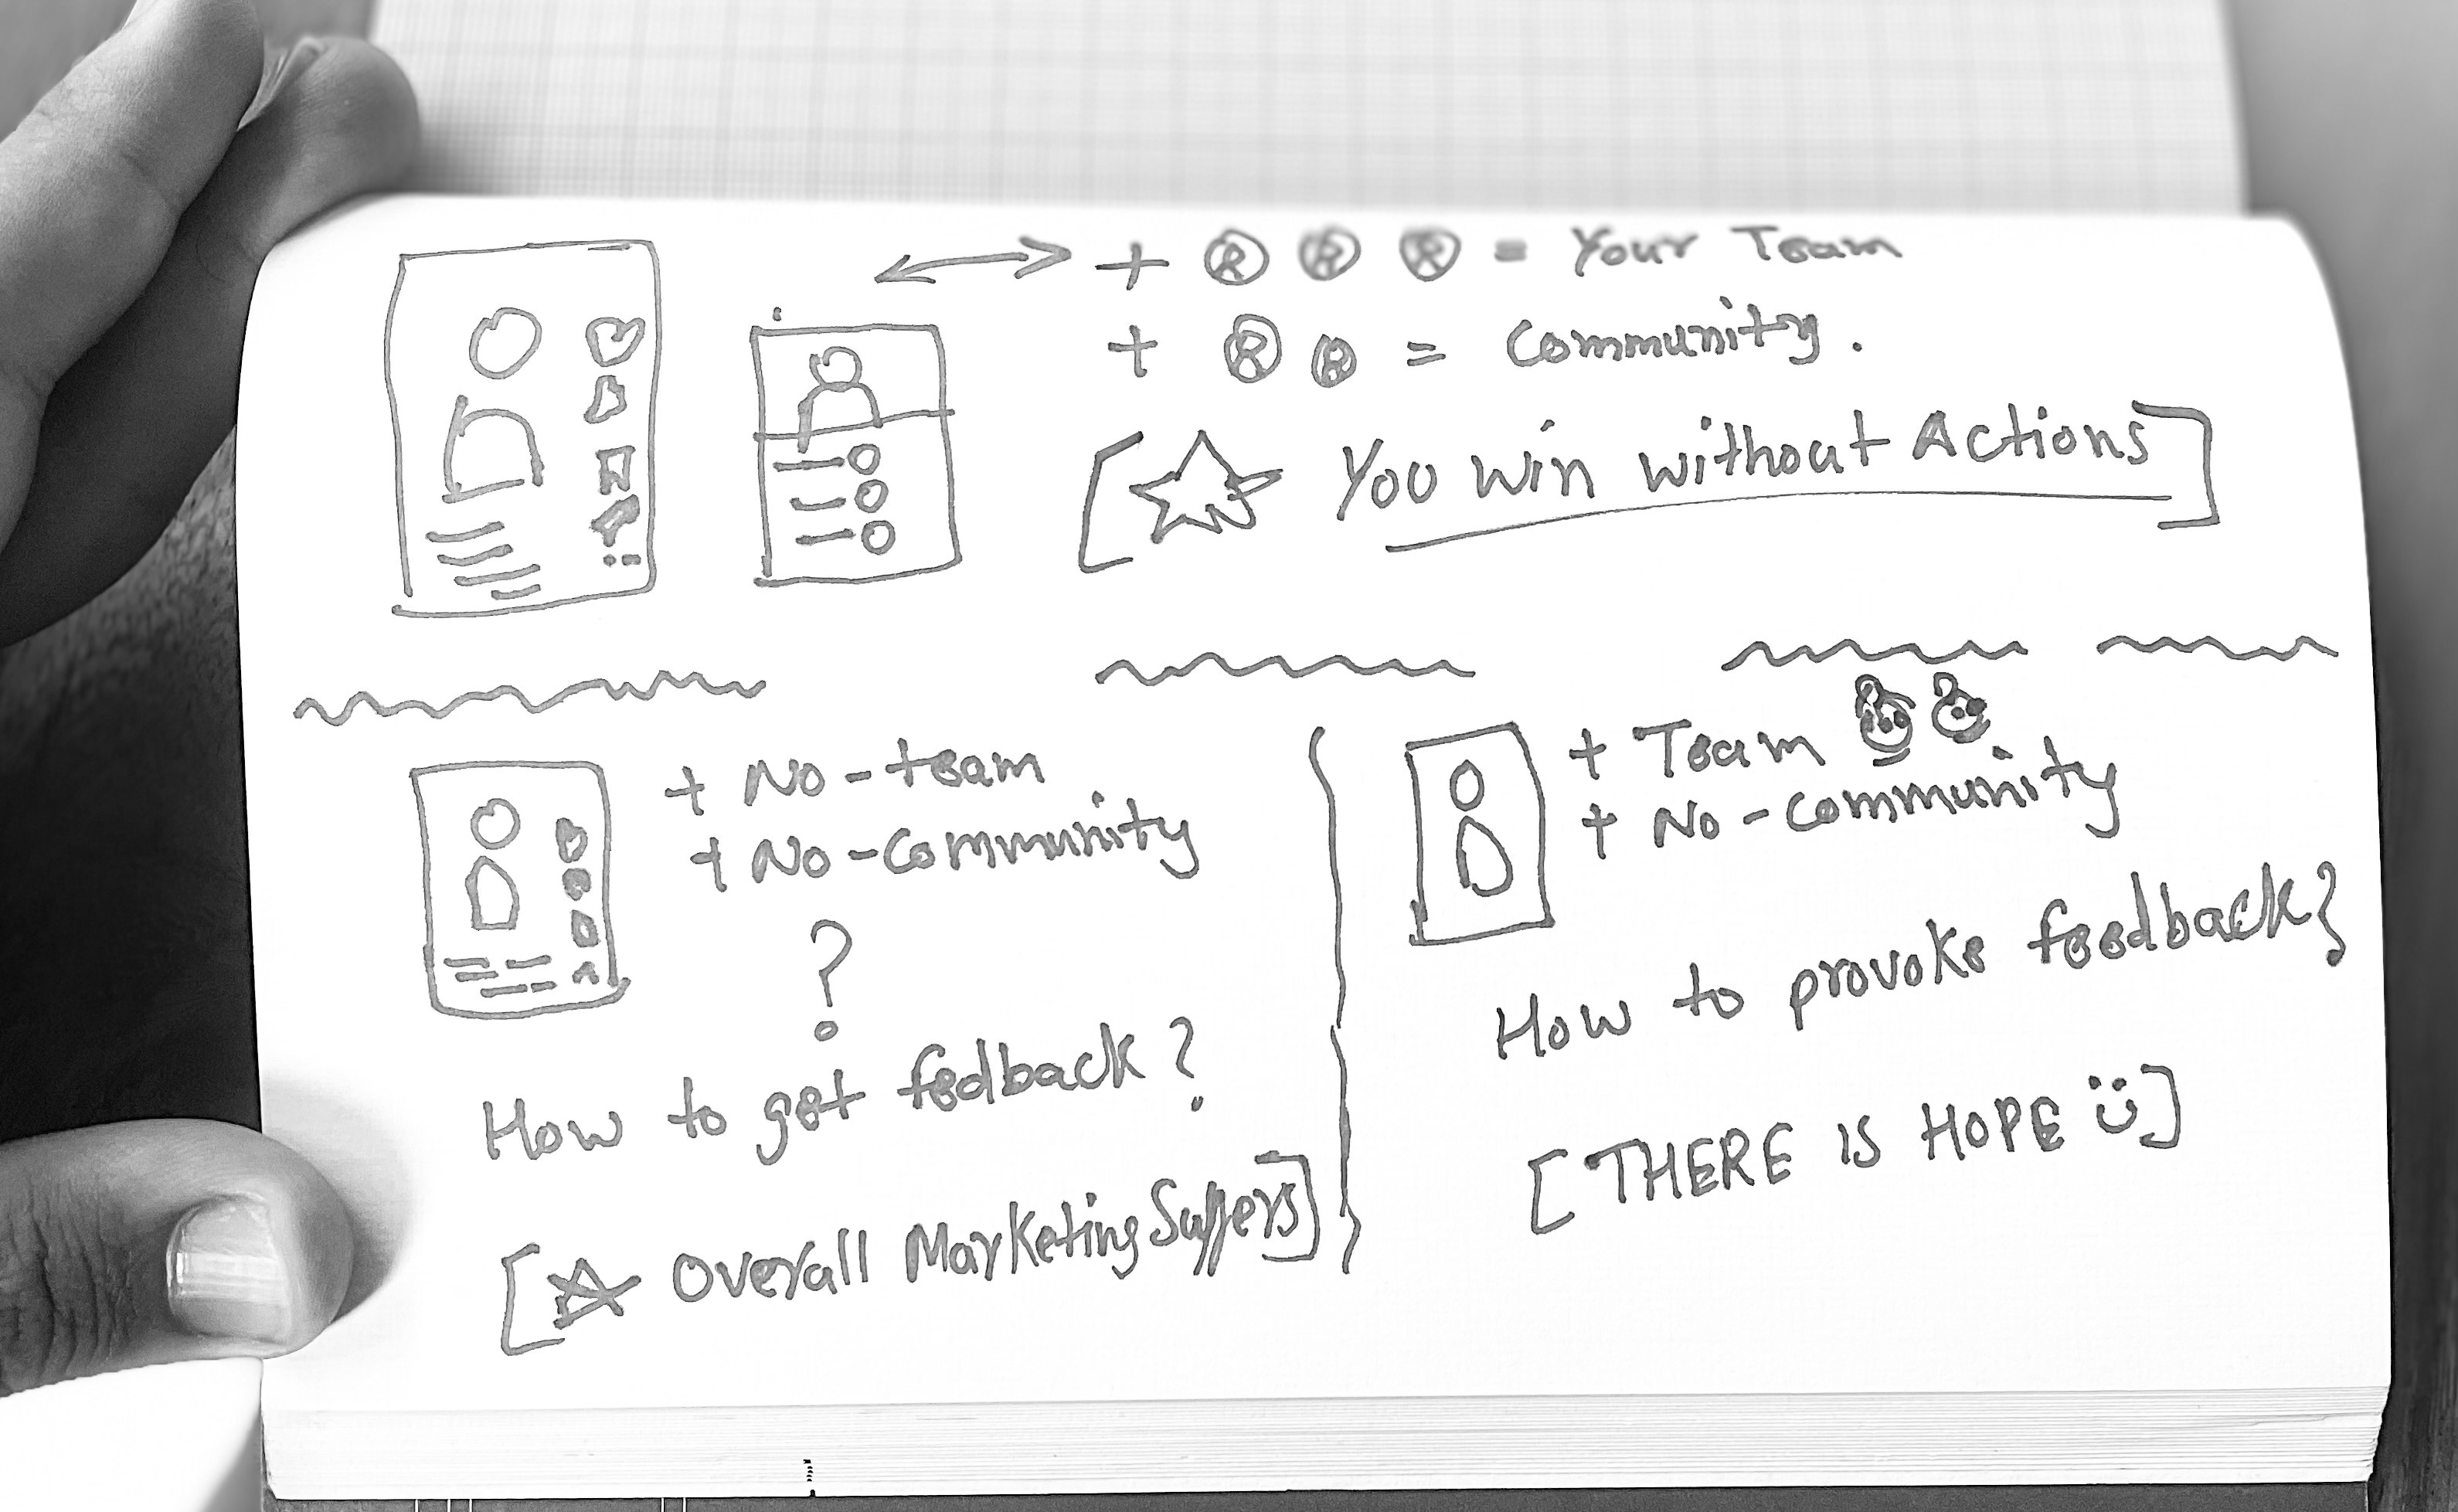 + Ⓡ Ⓡ Ⓡ = Your Team
+ Ⓡ Ⓡ = Community.
[☆ You Win without Actions]
+ No-team
+ No-Community
?
How to get fedback?
[☆ Overall Marketing Suffers]
+ Team
+ No-Community
How to provoke feedback?
[THERE IS HOPE ü]